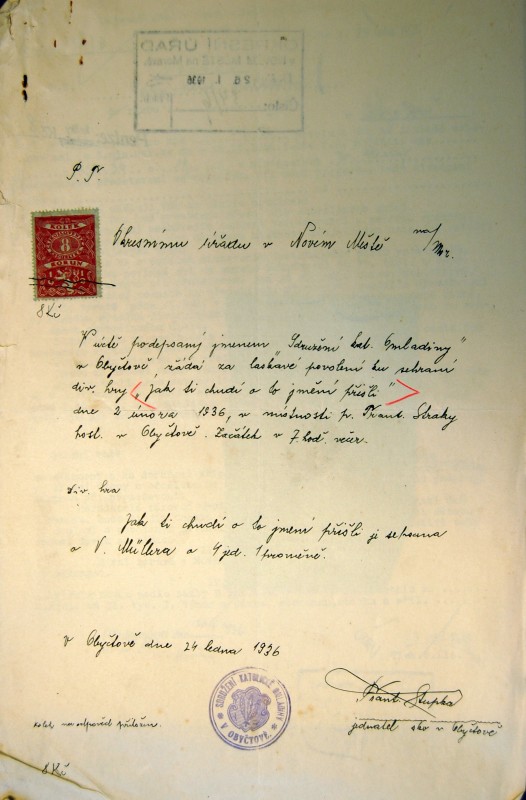 OKRESNÍ ÚŘAD
26. I. 1936
Číslo:
P. T.
KOLEK
8
KORUN
Okresnímu úřadu v Novém Městě na/Mor.
8 Kč
V úctě podepsaný jmenem "Sdružení kat. Omladiny"
v Obyčtově, žádá za laskavé povolení ku sehraní
div. hry "Jak ti chudí o to jmění přišli"
dne 2 února 1936, v místnosti p. Frant. Straky
host. v Obyčtově. Začátek v 7 hod. večr.
Div. hra
Jak ti chudí o to jmení přišli je sepsana
o V. Müllera o 4 jed. 1 proměně.
V Obyčtově dne 24 ledna 1936
SDRUŽENÍ KATOLICKÉ OMLADINY
V OBYČTOVĚ
Frant. Stupka
jednatel sko v Obyčtově
kolek na odpověď přiložen.
8 Kč